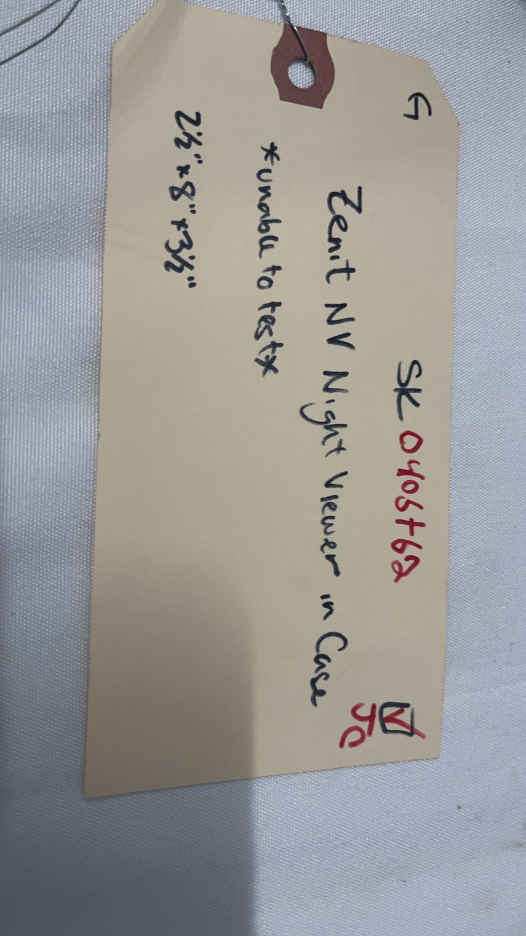 G
SK 0405t62
Zenit NV Night Viewer in Case
JC
*unable to test*
2½" x 8" x 3½"